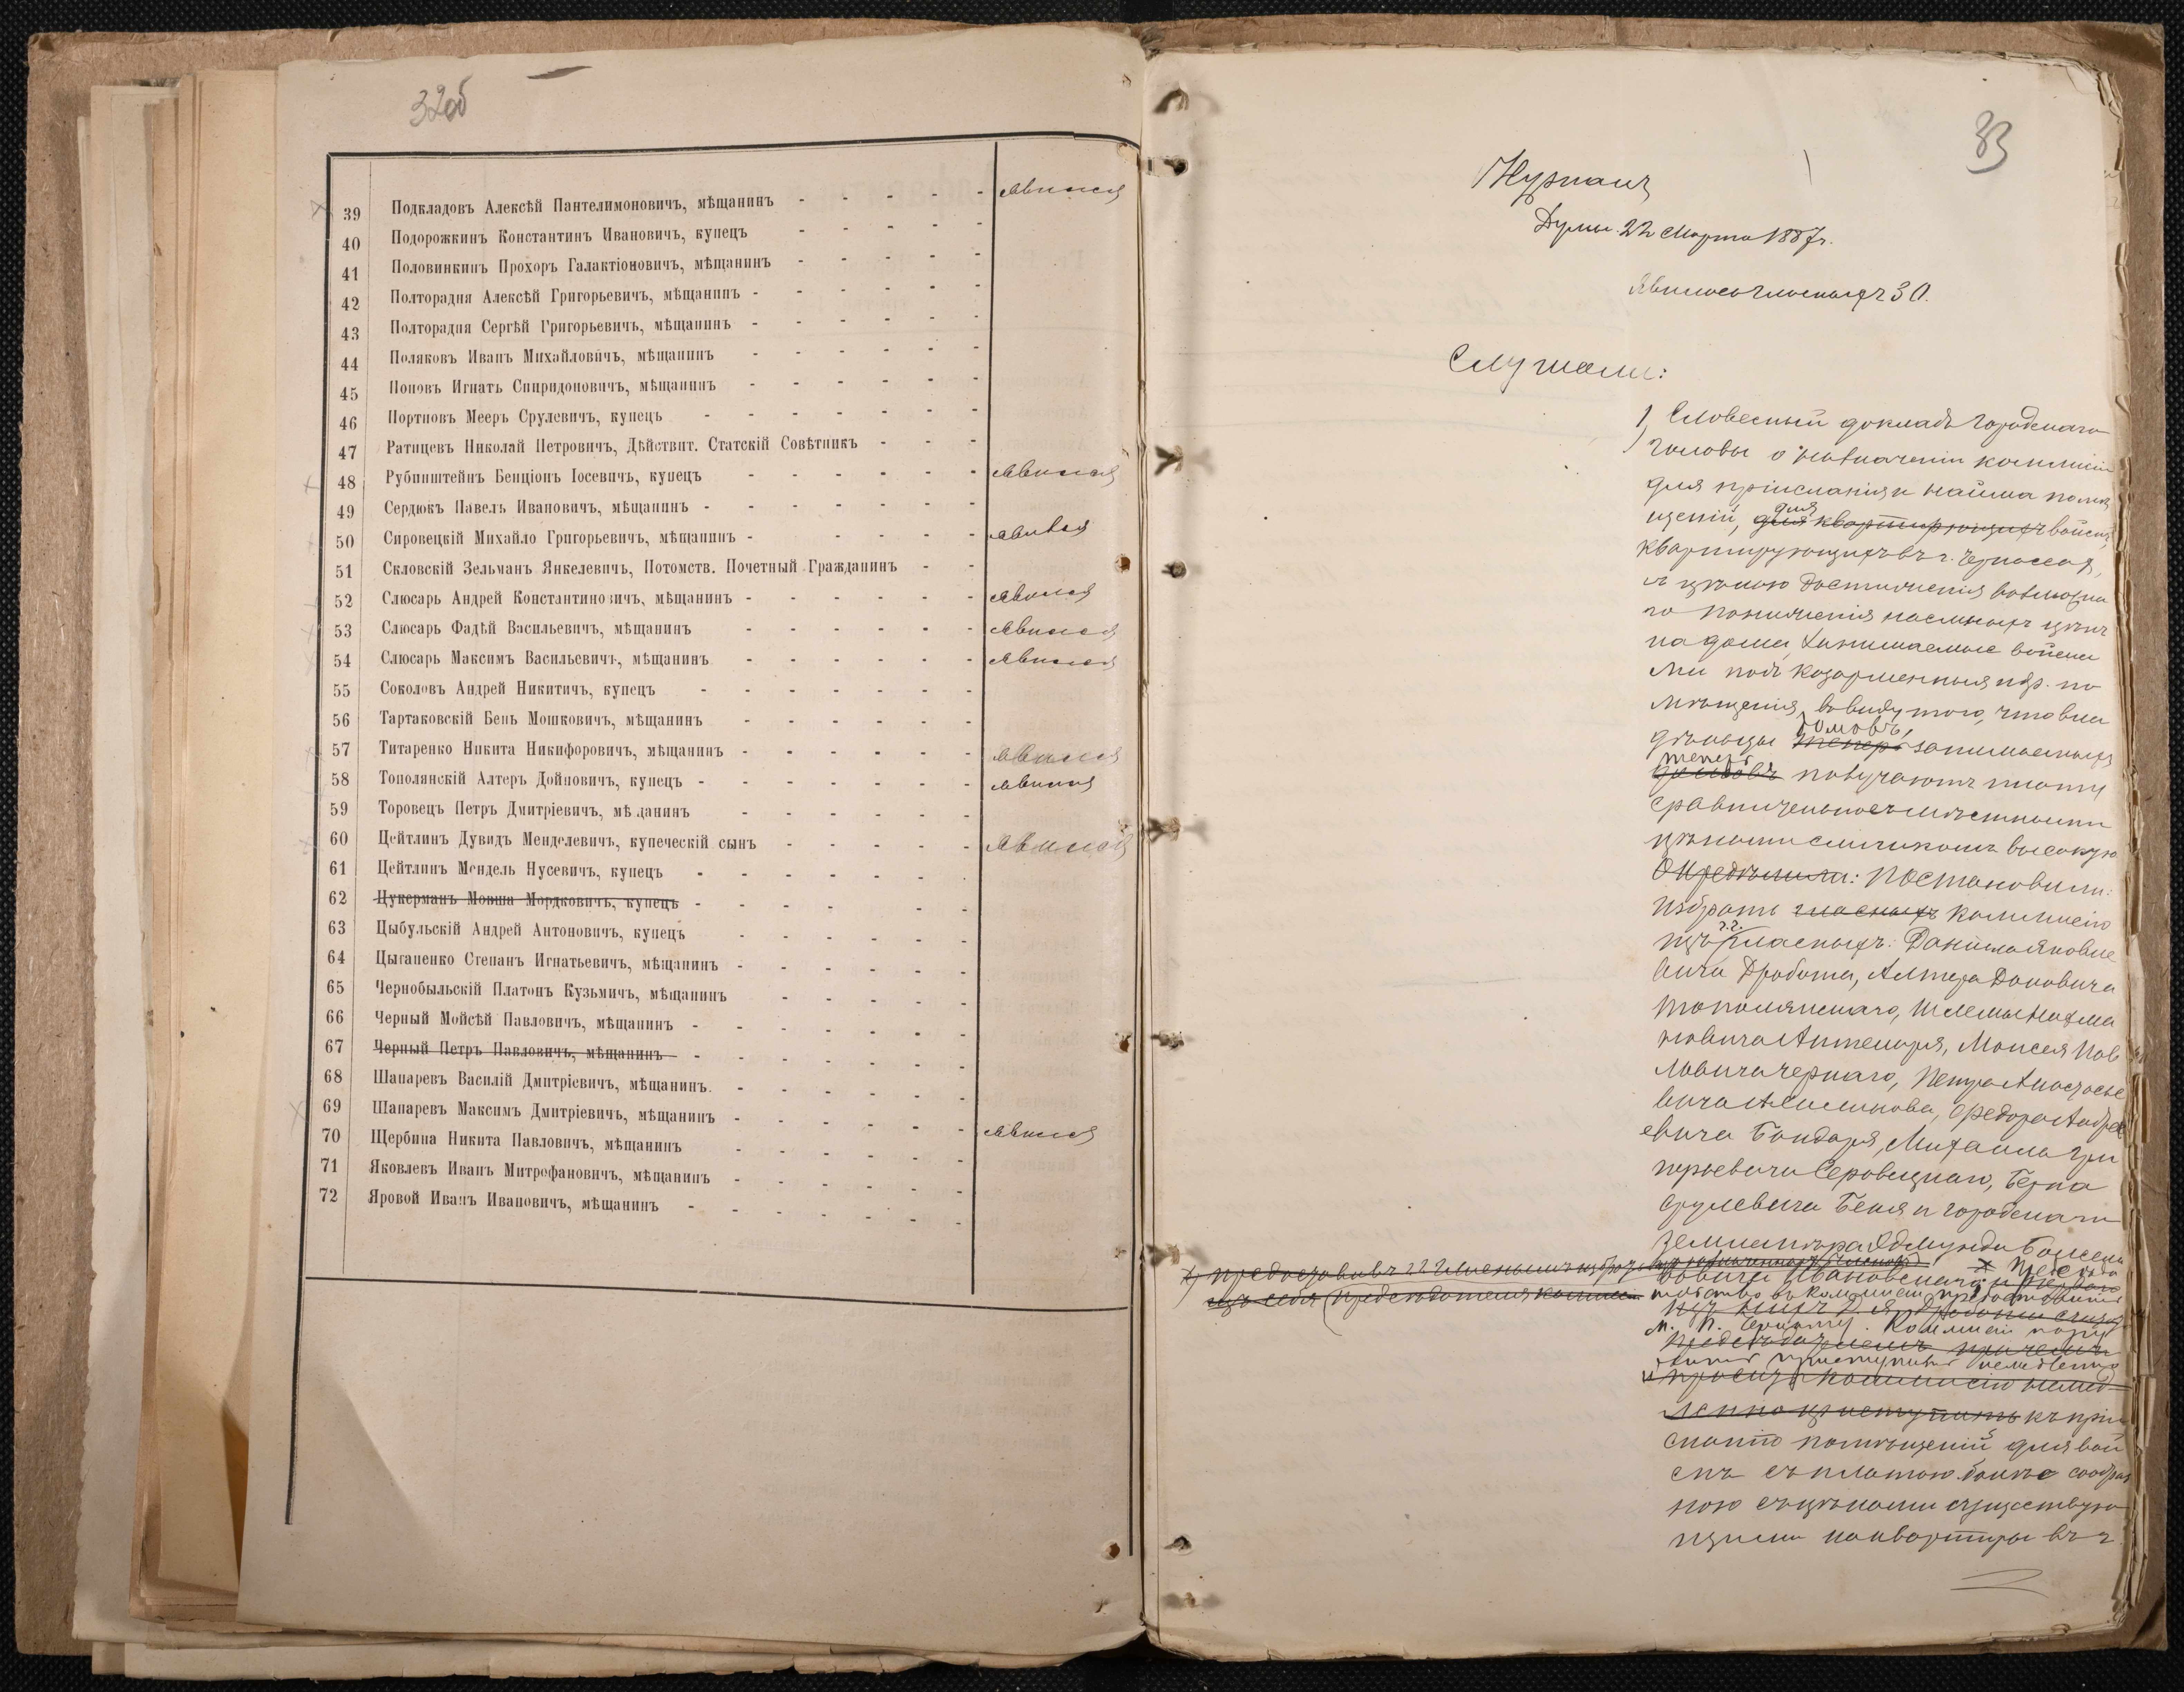 32об
39 Подкладовъ Алексѣй Пантелимоновичъ, мѣщанинъ - - - - - явился
40 Подорожкинъ Константинъ Ивановичъ, купецъ - - - - -
41 Половинкинъ Прохоръ Галактіоновичъ, мѣщанинъ - - - - -
42 Полторадня Алексѣй Григорьевичъ, мѣщанинъ - - - - - -
43 Полторадня Сергѣй Григорьевичъ, мѣщанинъ - - - - - -
44 Поляковъ Иванъ Михайловичъ, мѣщанинъ - - - - - -
45 Поповъ Игнатъ Спиридоновичъ, мѣщанинъ - - - - - -
46 Портновъ Мееръ Срулевичъ, купецъ - - - - - - -
47 Ратицевъ Николай Петровичъ, Дѣйствит. Статскій Совѣтникъ - - -
48 Рубинштейнъ Бенціонъ Іосевичъ, купецъ - - - - - - явился
49 Сердюкъ Павелъ Ивановичъ, мѣщанинъ - - - - - - -
50 Сировецкій Михайло Григорьевичъ, мѣщанинъ - - - - - явился
51 Скловскій Зельманъ Янкелевичъ, Потомств. Почетный Гражданинъ - -
52 Слюсарь Андрей Константиновичъ, мѣщанинъ - - - - - - явился
53 Слюсарь Фадѣй Васильевичъ, мѣщанинъ - - - - - - явился
54 Слюсарь Максимъ Васильевичъ, мѣщанинъ - - - - - - явился
55 Соколовъ Андрей Никитичъ, купецъ - - - - - - -
56 Тартаковскій Бень Мошковичъ, мѣщанинъ - - - - - -
57 Титаренко Никита Никифоровичъ, мѣщанинъ - - - - - - явился
58 Тополянскій Алтеръ Дойновичъ, купецъ - - - - - - - явился
59 Торовецъ Петръ Дмитріевичъ, мѣщанинъ - - - - - -
60 Цейтлинъ Дувидъ Менделевичъ, купеческій сынъ - - - - - явился
61 Цейтлинъ Мендель Нусевичъ, купецъ - - - - - - -
62 Цукерманъ Мовша Мордковичъ, купецъ - - - - - -
63 Цыбульскій Андрей Антоновичъ, купецъ - - - - - -
64 Цыганенко Степанъ Игнатьевичъ, мѣщанинъ - - - - - -
65 Чернобыльскій Платонъ Кузьмичъ, мѣщанинъ - - - - -
66 Черный Мойсѣй Павловичъ, мѣщанинъ - - - - - - -
67 Черный Петръ Павловичъ, мѣщанинъ - - - - - - -
68 Шапаревъ Василій Дмитріевичъ, мѣщанинъ. - - - - - -
69 Шапаревъ Максимъ Дмитріевичъ, мѣщанинъ - - - - - -
70 Щербина Никита Павловичъ, мѣщанинъ - - - - - - явился
71 Яковлевъ Иванъ Митрофановичъ, мѣщанинъ - - - - - -
72 Яровой Иванъ Ивановичъ, мѣщанинъ - - - - - - -
33
Журналъ
Думы 22 Марта 1887 г.
Явилось гласныхъ 30.
Слушали:
1) Словесный докладъ Городскаго
головы о назначеніи коммисіи
для пріисканія и найма помѣ
щеній, для квартирующихъ для войскъ,
квартирующихъ въ г. Черкассахъ,
съ цѣлью достиженія возможна
го пониженія наемныхъ цѣнъ
на дома, занимаемые войска
ми подъ казарменныя пр. по
мѣщенія, ввиду того, что вла
дѣльцы теперь домовъ, занимаемыхъ
домовъ теперь получаютъ плату
сравнительно съ мѣстными
цѣнами слишкомъ высокую
Опредѣлили: Постановили:
Избрать гласныхъ коммисію
изъ г.г. гласныхъ: Данила Яковле
вича Дробота, Алтера Доновича
Тополянскаго, Шлемы Нахма
новича Аптекаря, Моисея Пав
ловича Чернаго, Петра Афанасье
вича, Федора Андре
евича Бондаря, Михаила Гри
горьевича Серовецкаго, Берка
Срулевича Бенея и городскаго
землемѣра Эдмунда
Ивановскаго
х) предоставивъ гг гласнымъ избрать
изъ себя предсѣдателя коммисіи
М. П. Черному. Коммисіи
предсѣдателемъ, причемъ
приступить немедленно
и просить коммисію немед
ленно приступить къ прі
сканію помѣщеній для вой
скъ съ платою болѣе сообраз
ною съ цѣнами существую
щими на квартиры въ г.